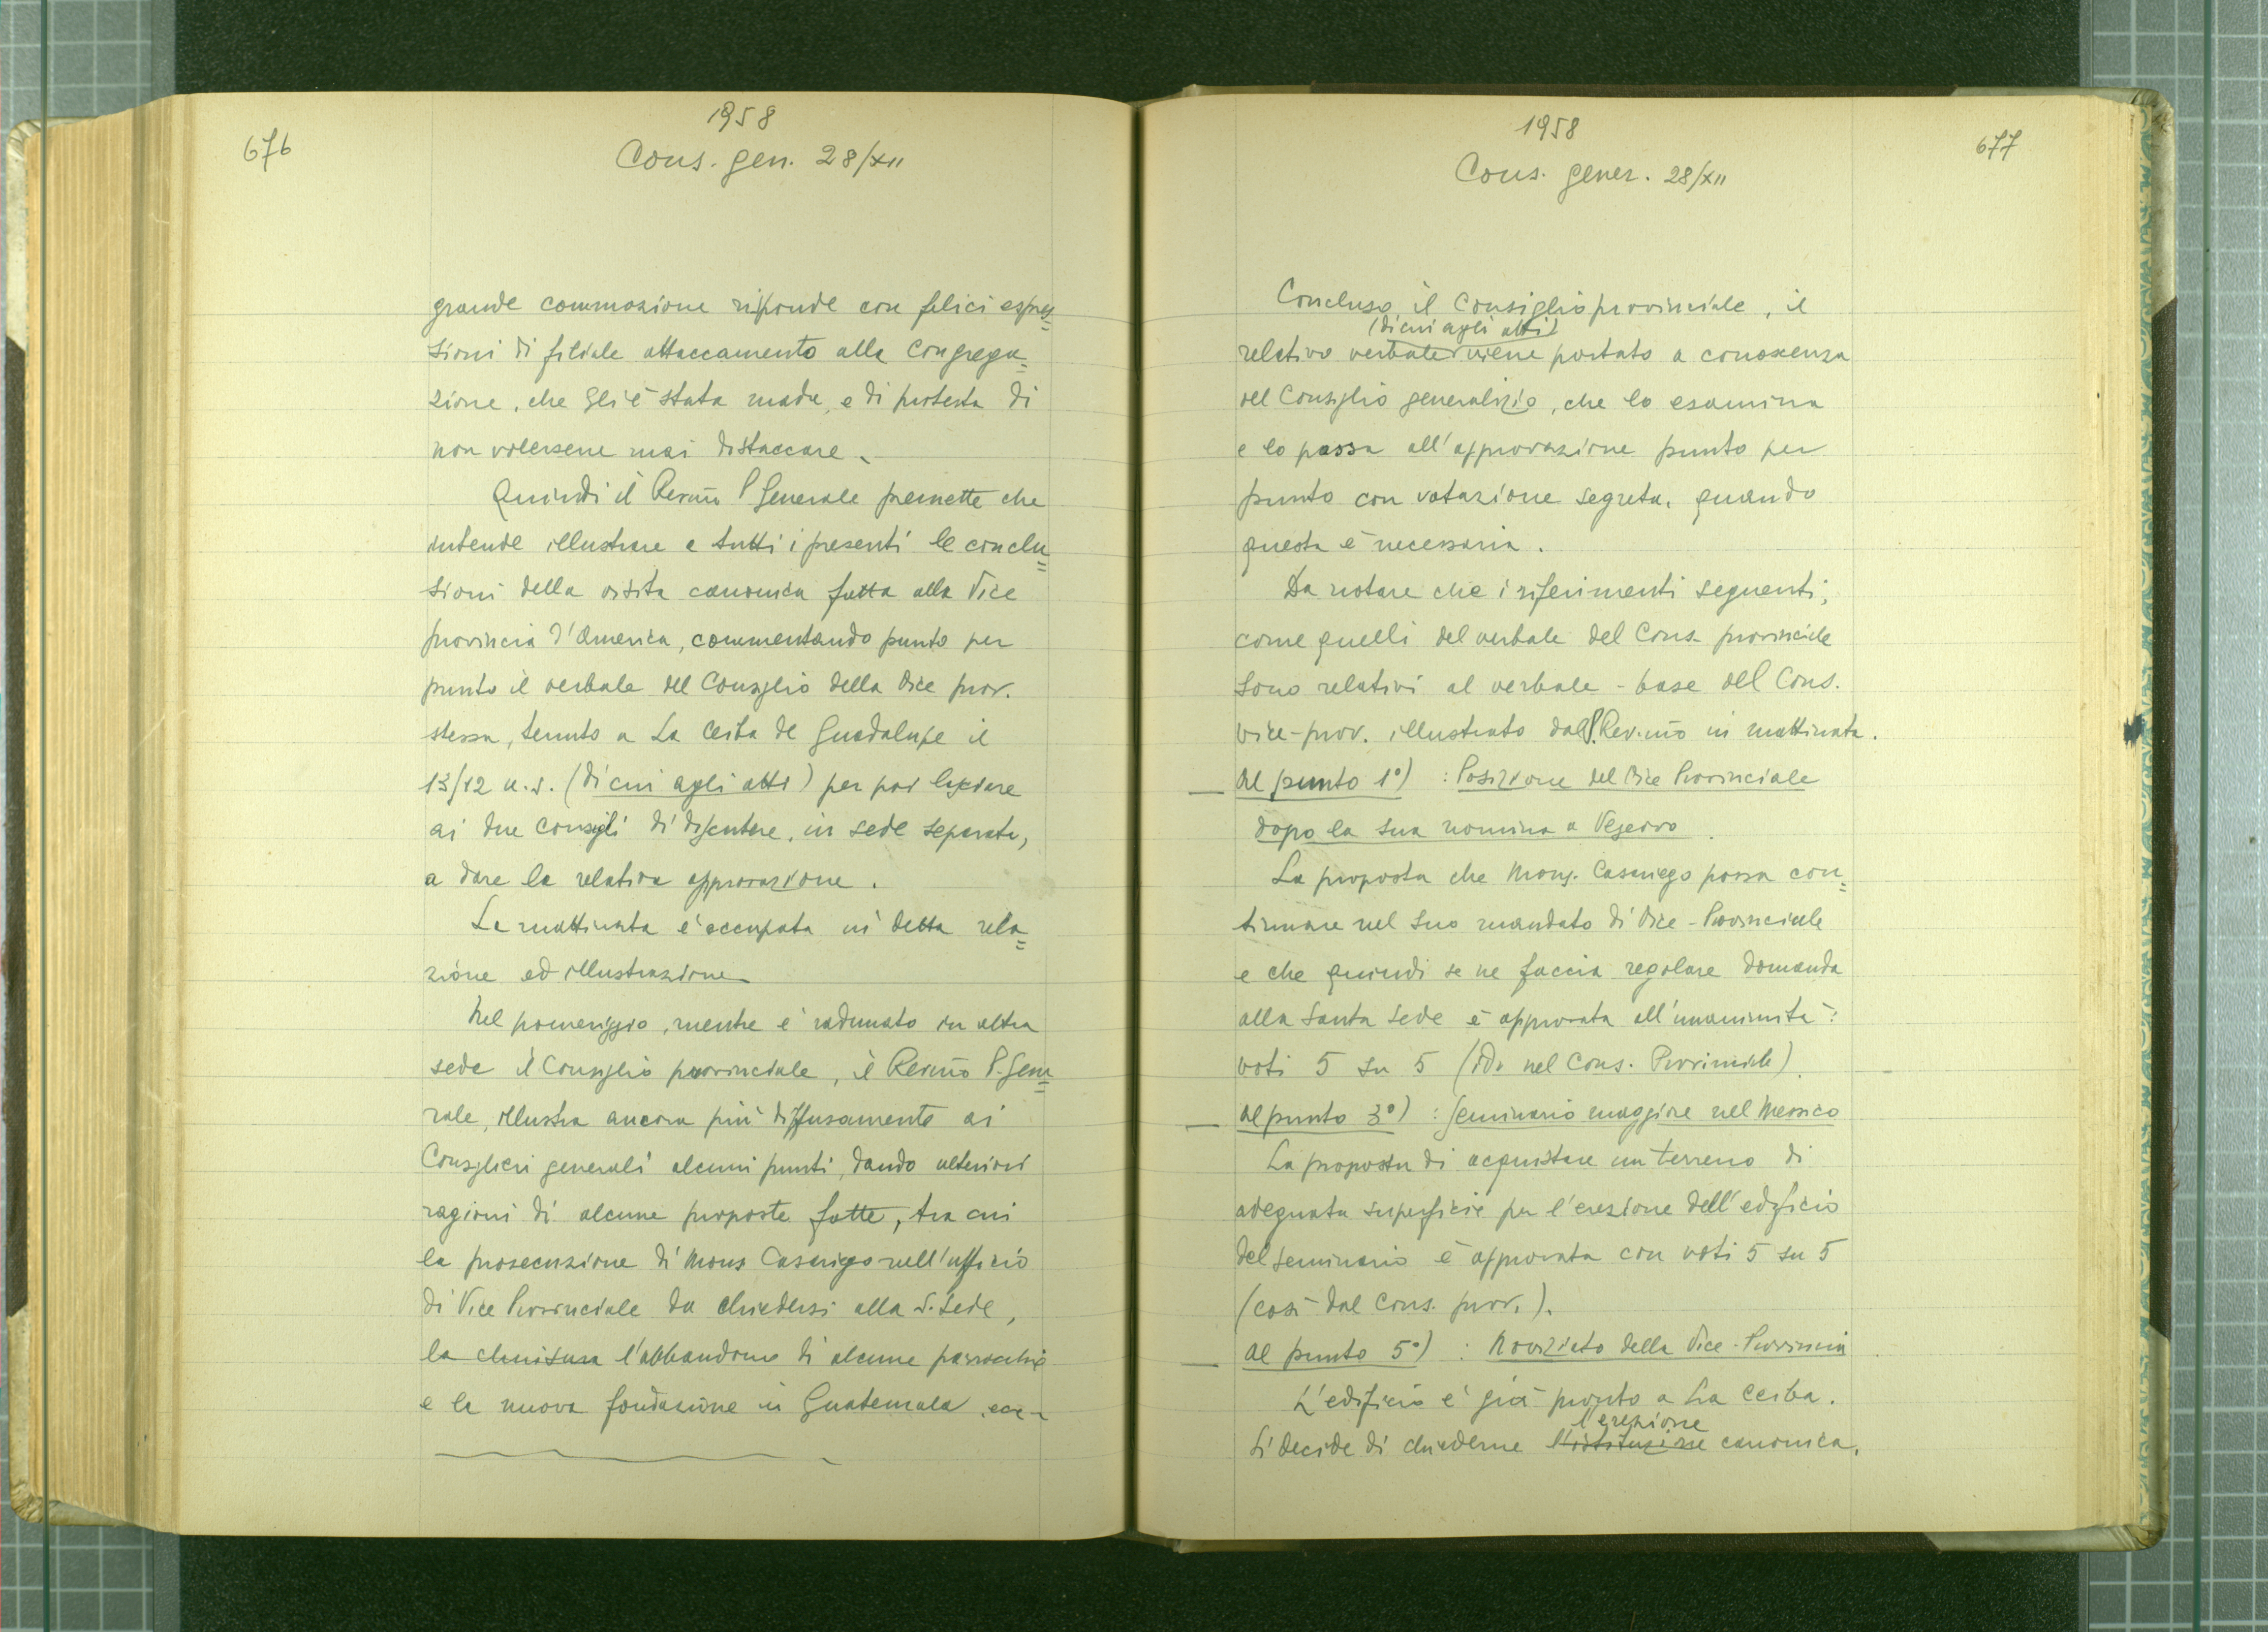 676
1958
Cons. gen. 28/XII
grande commozione risponde con felici espres=
sioni di filiale attaccamento alla Congrega=
zione, che gli è stata madre, e di protesta di
non volersene mai distaccare.
Quindi il Rev.mo P. Generale premette che
intende illustrare a tutti i presenti le conclu=
sioni della visita canonica fatta alla Vice
provincia d'America, commentando punto per
punto il verbale del Consiglio della Vice prov.
stessa, tenuto a La Ceiba de Guadalupe il
13/12 u.s. (di cui agli atti) per poi lasciare
ai due Consigli di discutere, in sede separata,
e dare la relativa approvazione.
La mattinata è occupata in detta rela=
zione ed illustrazione
Nel pomeriggio, mentre è radunato in altra
sede il Consiglio provinciale, il Rev.mo P. Gene=
rale, illustra ancora più diffusamente ai
Consiglieri generali alcuni punti, dando ulteriori
ragioni di alcune proposte fatte, tra cui
la prosecuzione di Mons. Casariego nell'ufficio
di Vice Provinciale da chiedersi alla S. Sede,
la chiusura l'abbandono di alcune parrocchie
e la nuova fondazione in Guatemala, ecc.
1958
Cons. gener. 28/XII
677
Concluso il Consiglio provinciale, il
(di cui agli atti)
relativo verbale viene portato a conoscenza
del Consiglio generalizio, che lo esamina
e lo passa all'approvazione punto per
punto con votazione segreta, quando
questa è necessaria.
Da notare che i riferimenti seguenti,
come quelli del verbale del Cons. provinciale
sono relativi al verbale-base del Cons.
vice-prov. illustrato dal P. Rev.mo in mattinata.
— Al punto 1°) : Posizione del Vice Provinciale
dopo la sua nomina a Vescovo.
La proposta che Mons. Casariego possa con=
tinuare nel suo mandato di Vice-Provinciale
e che quindi se ne faccia regolare domanda
alla Santa Sede è approvata all'unanimità:
voti 5 su 5 (idem nel Cons. Provinciale).
— Al punto 3°) : Seminario maggiore nel Messico
La proposta di acquistare un terreno di
adeguata superficie per l'erezione dell'edificio
del Seminario è approvata con voti 5 su 5
(così dal Cons. prov.).
— Al punto 5°) : Noviziato della Vice-Provincia
L'edificio è già pronto a La Ceiba.
l'erezione
Si decide di chiederne l'istituzione canonica.